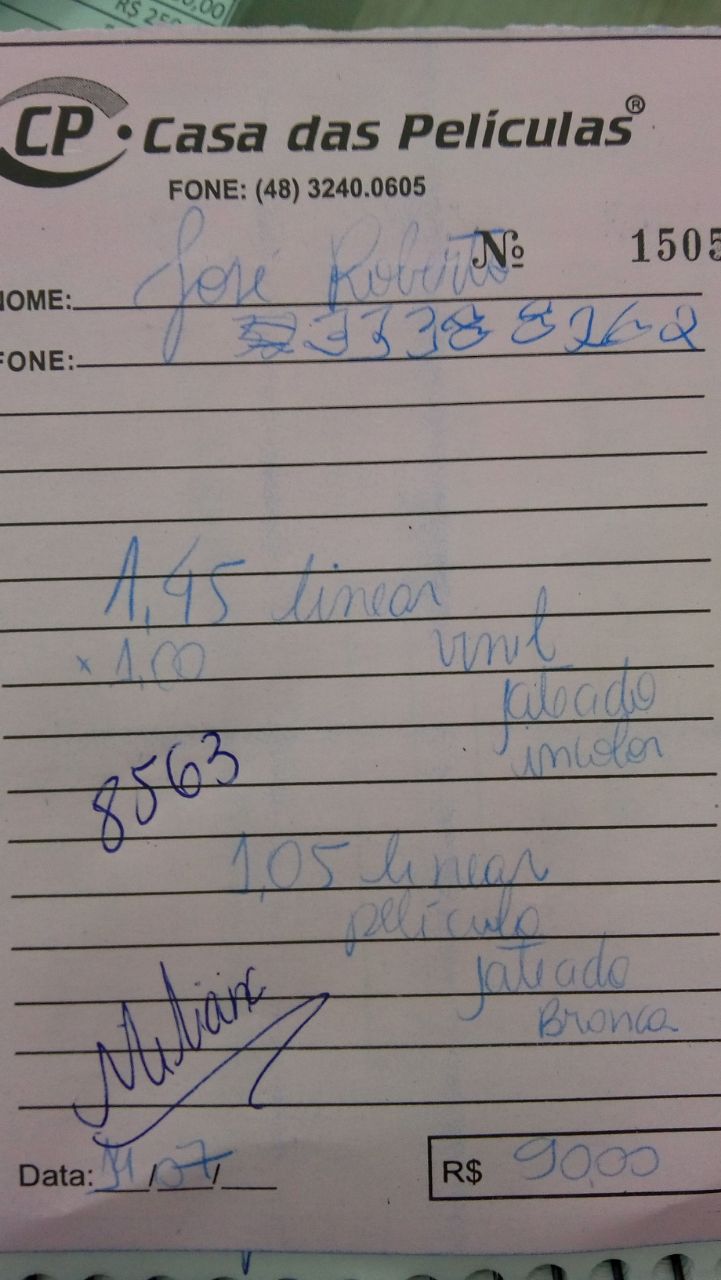 R$ 25
CP • Casa das Películas®
FONE: (48) 3240.0605
Nº 1505
NOME: José Roberto
FONE: 33388262
1,45 linear
x 1,00
vinil
jateado
incolor
8563
1,05 linear
película
jateado
Branca
Data: /07/
R$ 90,00